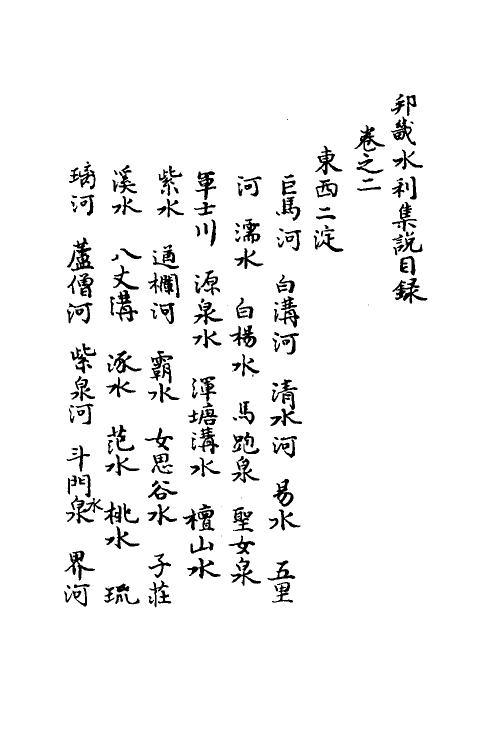 邦畿水利集說目録
卷之二
東西二淀
巨馬河 白溝河 清水河 易水 五里
河 濡水 白楊水 馬跑泉 聖女泉
軍士川 源泉水 渾塘溝水 檀山水
紫水 通欄河 霸水 女思谷水 子莊
溪水 八丈溝 涿水 范水 桃水 琉
璃河 蘆僧河 紫泉河 斗門泉水 界河